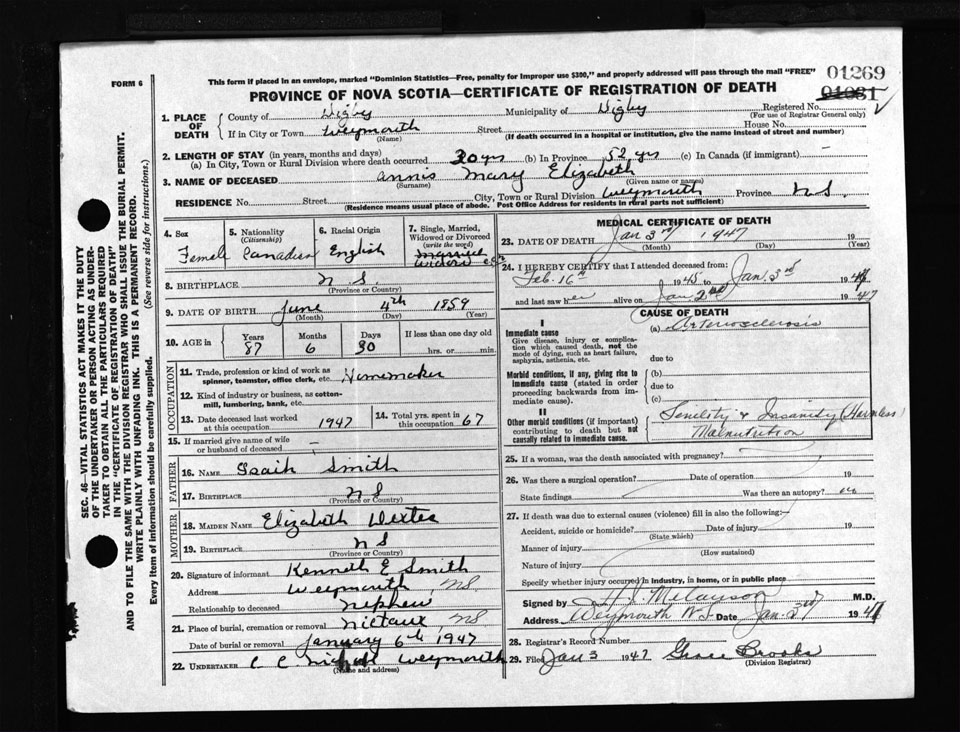 FORM 6
This form if placed in an envelope, marked "Dominion Statistics—Free, penalty for improper use $300," and properly addressed will pass through the mail "FREE"
01269
01031
PROVINCE OF NOVA SCOTIA—CERTIFICATE OF REGISTRATION OF DEATH
SEC. 46—VITAL STATISTICS ACT MAKES IT THE DUTY
OF THE UNDERTAKER OR PERSON ACTING AS UNDER-
TAKER TO OBTAIN ALL THE PARTICULARS REQUIRED
IN THE "CERTIFICATE OF REGISTRATION OF DEATH"
AND TO FILE THE SAME WITH THE DIVISION REGISTRAR WHO SHALL ISSUE THE BURIAL PERMIT.
WRITE PLAINLY WITH UNFADING INK. THIS IS A PERMANENT RECORD.
Every item of information should be carefully supplied. (See reverse side for instructions.)
1. PLACE OF DEATH
County of Digby Municipality of Digby Registered No.
(For use of Registrar General only)
If in City or Town Weymouth Street House No.
(Name) (If death occurred in a hospital or institution, give the name instead of street and number)
2. LENGTH OF STAY (in years, months and days)
(a) In City, Town or Rural Division where death occurred 20 yrs (b) In Province 52 yrs (c) In Canada (if immigrant) –
3. NAME OF DECEASED Annis Mary Elizabeth
(Surname) (Given name or names)
RESIDENCE No. Street City, Town or Rural Division Weymouth Province N.S.
(Residence means usual place of abode. Post Office Address for residents in rural parts not sufficient)
4. Sex
Female
5. Nationality (Citizenship)
Canadian
6. Racial Origin
English
7. Single, Married, Widowed or Divorced (write the word)
Married
Widow
8. BIRTHPLACE N S.
(Province or Country)
9. DATE OF BIRTH June 4th 1859
(Month) (Day) (Year)
10. AGE in Years Months Days If less than one day old
87 6 30 hrs. or min.
OCCUPATION
11. Trade, profession or kind of work as spinner, teamster, office clerk, etc. Homemaker
12. Kind of industry or business, as cotton-mill, lumbering, bank, etc.
13. Date deceased last worked at this occupation 1947
14. Total yrs. spent in this occupation 67
15. If married give name of wife or husband of deceased –
FATHER
16. NAME Isaih Smith
17. BIRTHPLACE N S
(Province or Country)
MOTHER
18. MAIDEN NAME Elizabeth Dexter
19. BIRTHPLACE N S
(Province or Country)
20. Signature of informant Kenneth E Smith
Address Weymouth NS
Relationship to deceased Nephew
21. Place of burial, cremation or removal Nictaux NS
Date of burial or removal January 6th 1947
22. UNDERTAKER C C Weymouth
(Name and address)
MEDICAL CERTIFICATE OF DEATH
23. DATE OF DEATH Jan 3rd 1947
(Month) (Day) (Year)
24. I HEREBY CERTIFY that I attended deceased from:
Feb. 16th 1945 to Jan. 3rd 1947
and last saw her alive on Jan 2nd 1947
CAUSE OF DEATH
I
Immediate cause
Give disease, injury or complication which caused death, not the mode of dying, such as heart failure, asphyxia, asthenia, etc.
(a) Arteriosclerosis
due to
Morbid conditions, if any, giving rise to immediate cause (stated in order proceeding backwards from immediate cause).
(b)
due to
(c)
II
Other morbid conditions (if important) contributing to death but not causally related to immediate cause.
Senility & Insanity (Harmless)
Malnutrition
25. If a woman, was the death associated with pregnancy?
26. Was there a surgical operation? Date of operation 19
State findings Was there an autopsy? no
27. If death was due to external causes (violence) fill in also the following:—
Accident, suicide or homicide? Date of injury 19
(State which)
Manner of injury
(How sustained)
Nature of injury
Specify whether injury occurred in industry, in home, or in public place
Signed by H. J. Melanson M.D.
Address Weymouth N.S. Date Jan. 3rd 1947
28. Registrar's Record Number
29. Filed Jan 3 1947 Grace Brooks
(Division Registrar)